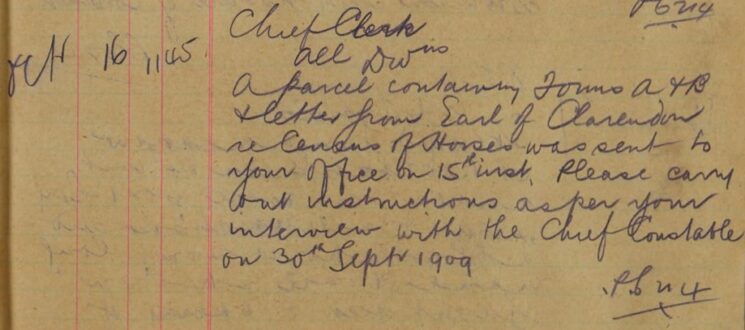 PC 114
Chief Clerk
Oct 16 1145 all Dwns
A parcel containing Forms A & B
& letter from Earl of Clarendon
re Census of Horses was sent to
your office on 15th inst. Please carry
out instructions as per your
interview with the Chief Constable
on 30th Septr 1909
PC 114